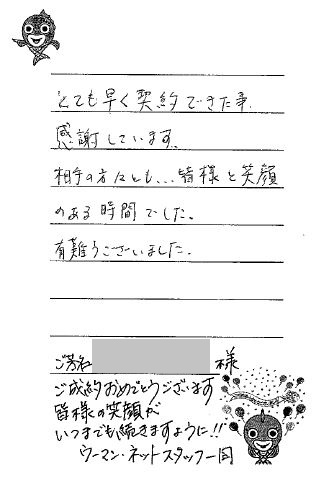 とても早く契約できた事
感謝しています。
相手の方々とも...皆様と笑顔
のある時間でした。
有難うございました。
ご芳名 様
ご成約おめでとうございます
皆様の笑顔が
いつまでも続きますように!!
ウーマン・ネットスタッフ一同